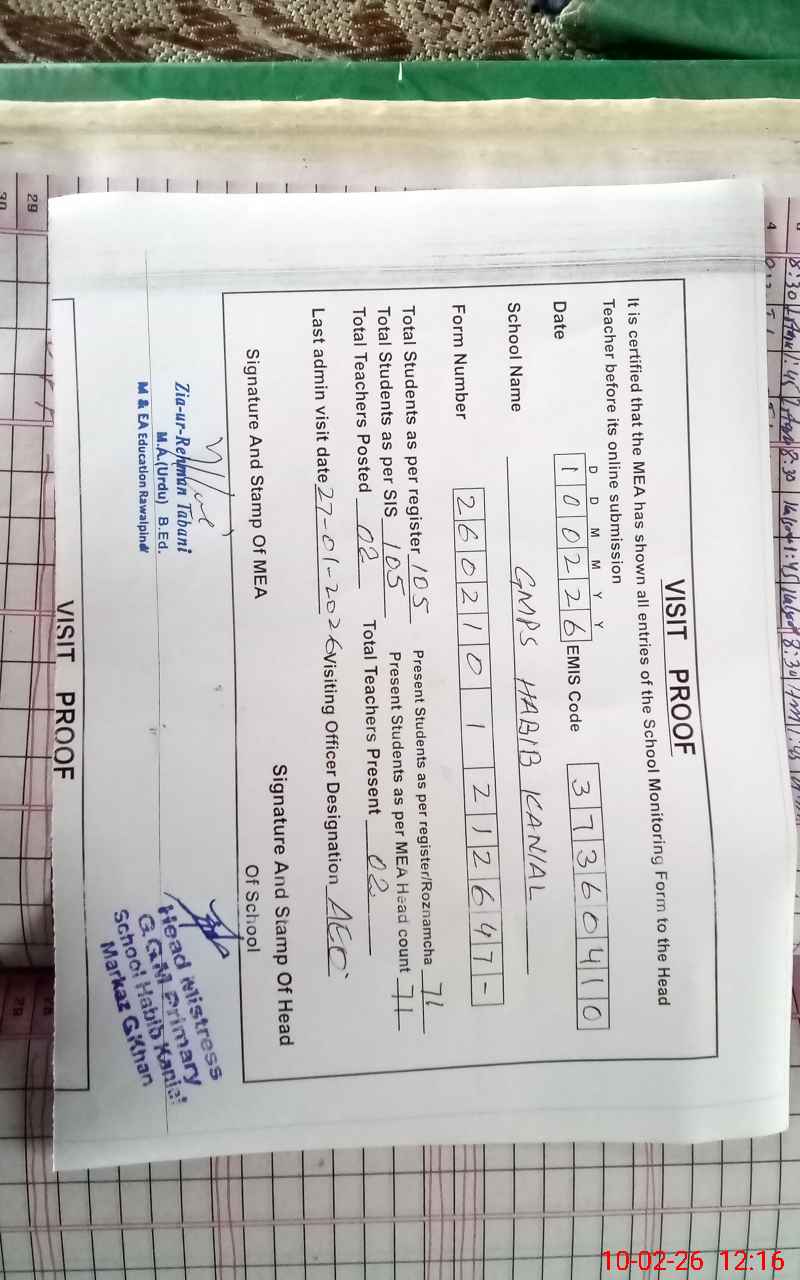 VISIT PROOF
It is certified that the MEA has shown all entries of the School Monitoring Form to the Head
Teacher before its online submission
D D M M Y Y
Date 100226 EMIS Code 37360410
School Name GMPS HABIB KANIAL
Form Number 2602101212647-
Total Students as per register 105 Present Students as per register/Roznamcha 71
Total Students as per SIS 105 Present Students as per MEA Head count 71
Total Teachers Posted 02 Total Teachers Present 02
Last admin visit date 27-01-2026 Visiting Officer Designation AEO
Signature And Stamp Of MEA Signature And Stamp Of Head
Of School
Zia-ur-Rehman Tabani
M.A.(Urdu) B.Ed.
M & EA Education Rawalpindi
Head Mistress
G.G.M Primary
School Habib Kanial
Markaz G.Khan
VISIT PROOF
29
30
10-02-26 12:16